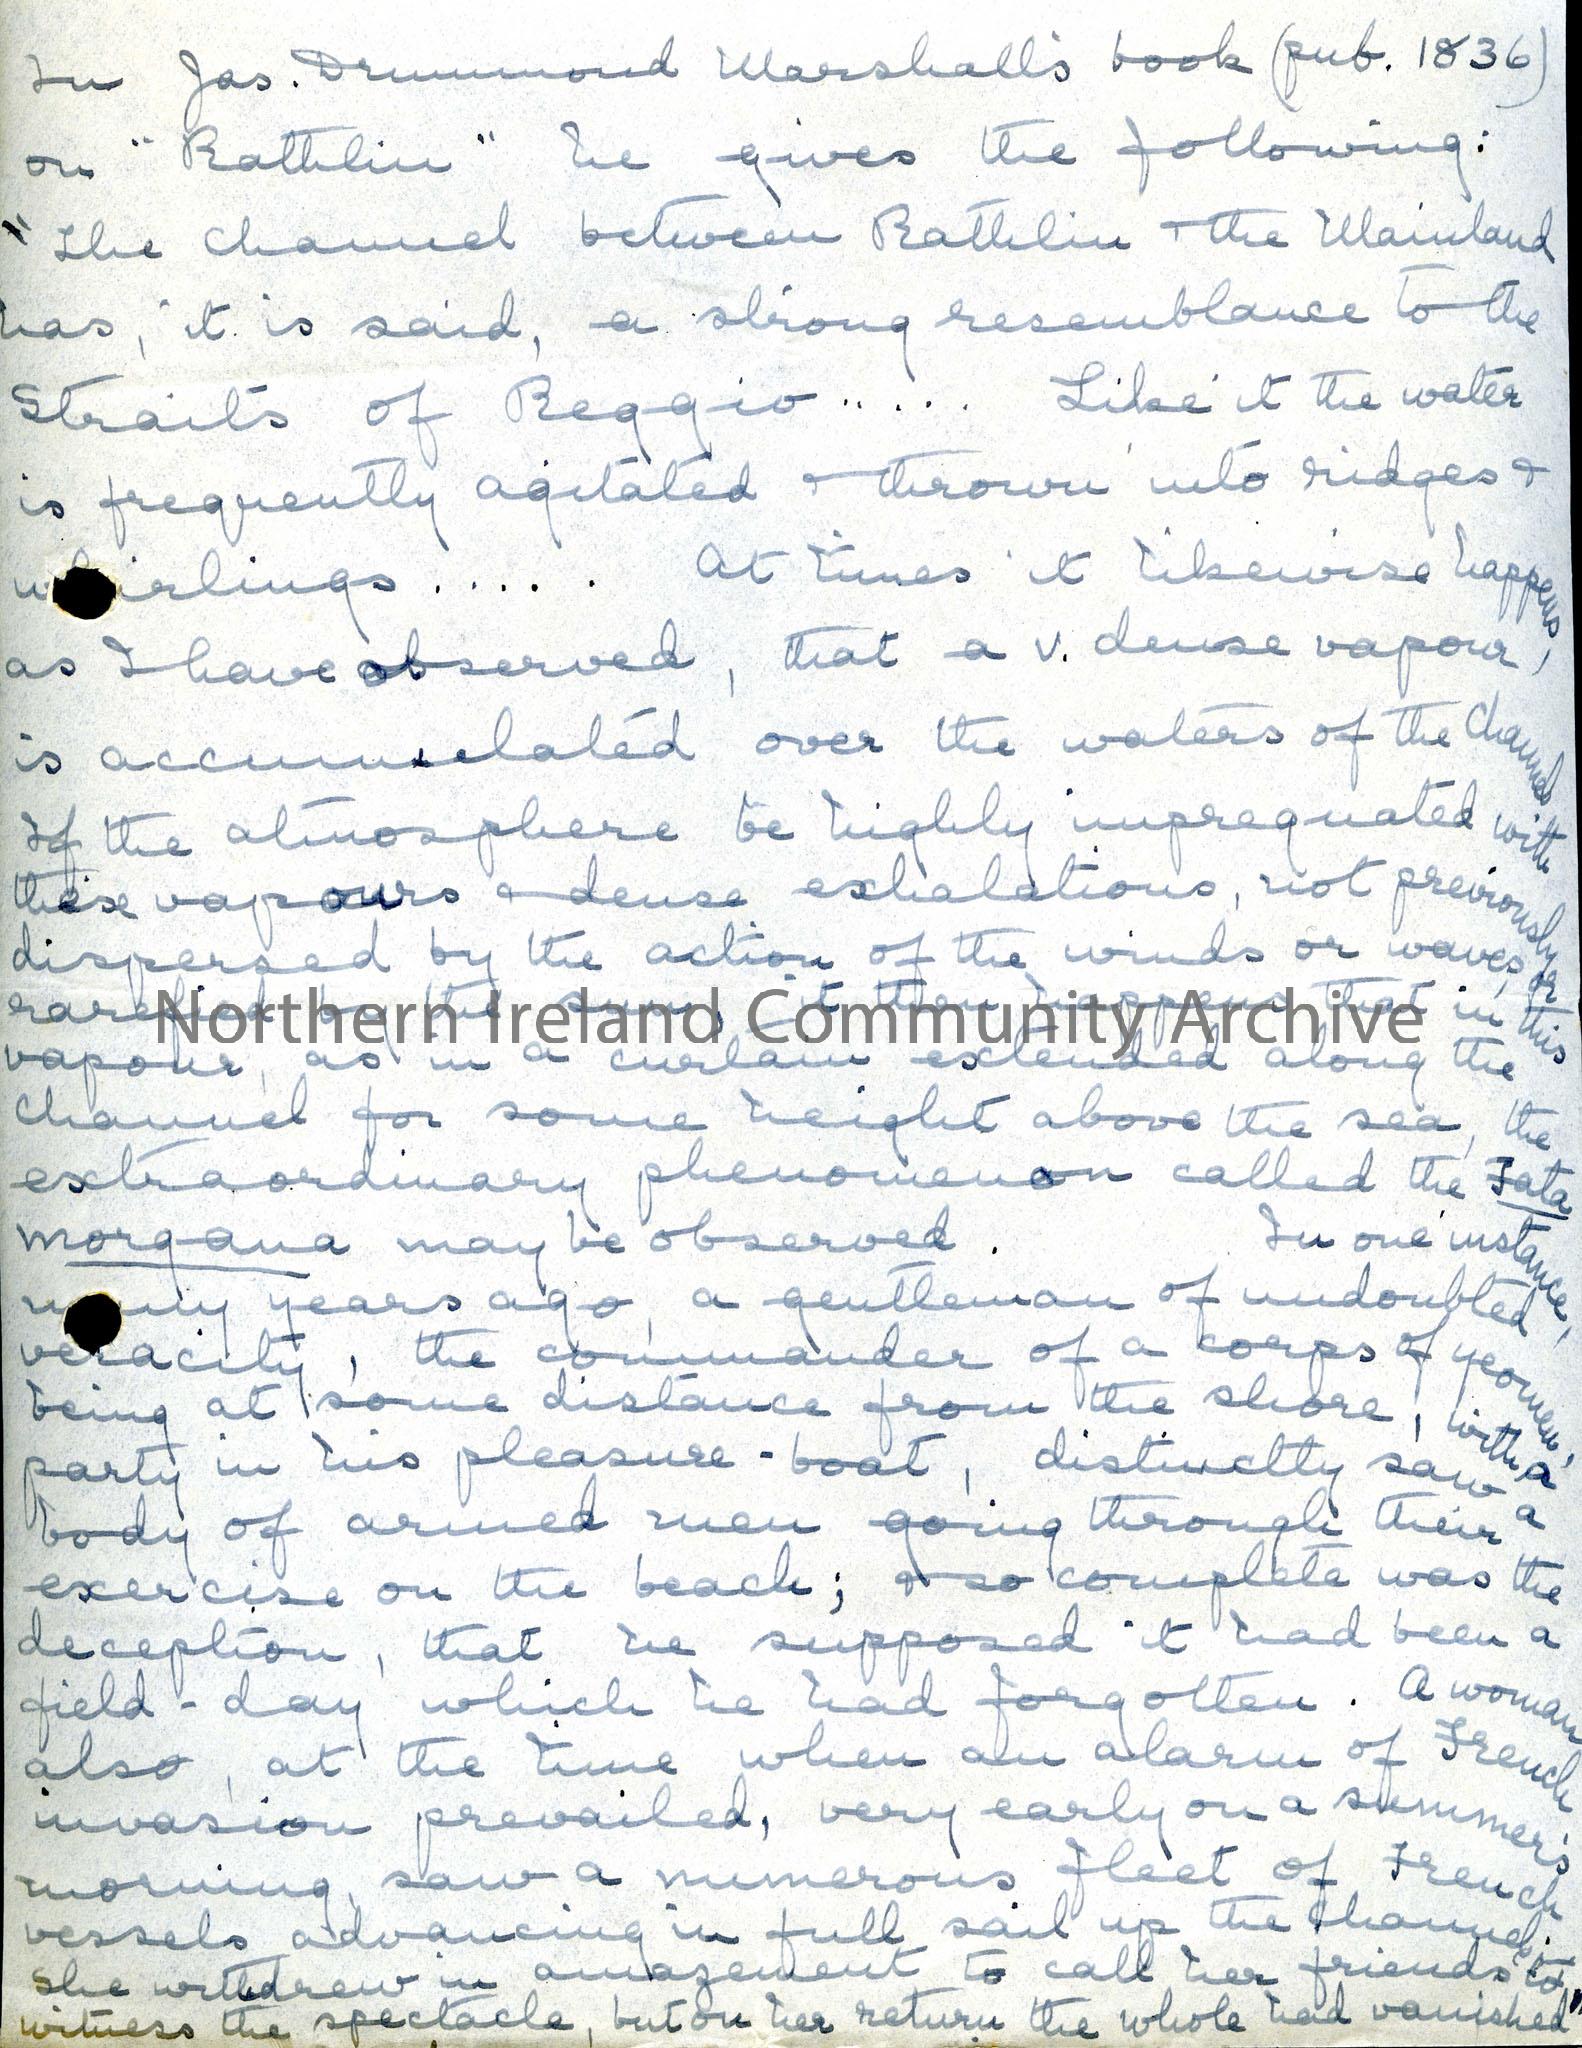 In Jas. Drummond Marshall's book (pub. 1836)
on "Rathlin" he gives the following:
"The Channel between Rathlin & the Mainland
has, it is said, a strong resemblance to the
Straits of Reggio ..... Like it the water
is frequently agitated & thrown into ridges &
whirlings ..... At times it likewise happens,
as I have observed, that a v. dense vapour
is accumulated over the waters of the Channel
If the atmosphere be highly impregnated with
these vapours & dense exhalations, not previously
dispersed by the action of the winds or waves, or
rarefied by the sun, it then happens that in this
vapour, as in a curtain extended along the
Channel for some height above the sea, the
extraordinary phenomenon called the Fata
morgana may be observed. In one instance,
many years ago, a gentleman of undoubted
veracity, the commander of a corps of yeomen,
being at some distance from the shore, with a
party in his pleasure-boat, distinctly saw a
body of armed men going through their
exercise on the beach; & so complete was the
deception, that he supposed it had been a
field-day which he had forgotten. A woman
also, at the time when an alarm of French
invasion prevailed, very early on a summer's
morning, saw a numerous fleet of French
vessels advancing in full sail up the Channel;
She withdrew in amazement to call her friends to
witness the spectacle, but on her return the whole had vanished"
Northern Ireland Community Archive